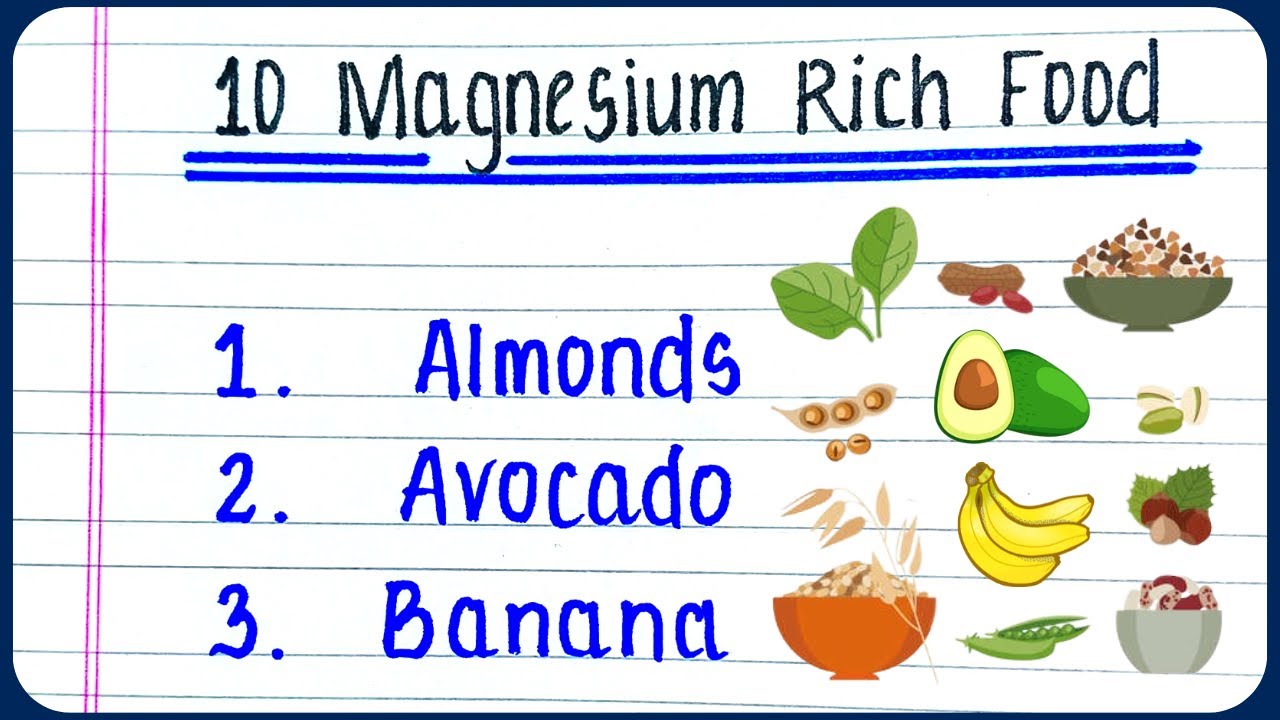 10 Magnesium Rich Food
1. Almonds
2. Avocado
3. Banana